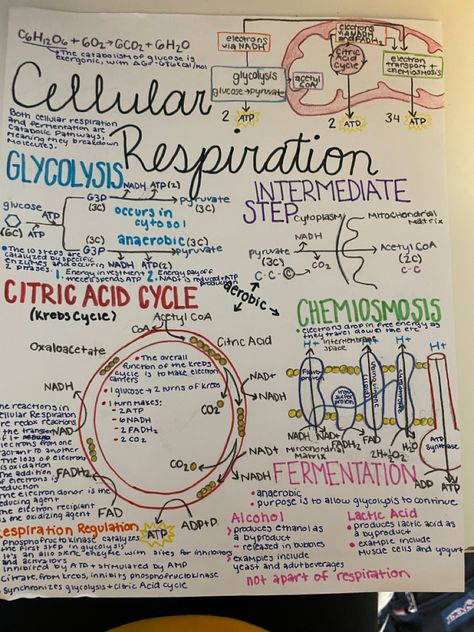 C6H12O6 + 6O2 → 6CO2 + 6H2O
The catabolism of glucose is
exergonic, with
electrons
via NADH
electrons
via NADH
and FADH2
glycolysis
glucose → pyruvate
acetyl
CoA
Citric
Acid
Cycle
electron
transport
chemiosmosis
2 ATP
2 ATP
34 ATP
Cellular
Respiration
Both cellular respiration
and fermentation are
Catabolic Pathways,
Meaning they breakdown
Molecules.
GLYCOLYSIS
NADH ATP (2)
G3P
(3C)
pyruvate
(3C)
glucose
(6C)
ATP
ATP
occurs in
cytosol
anaerobic
(3C)
(3C)
G3P
pyruvate
NADH ATP (2)
The 10 steps are
catalyzed by specific
enzymes and occur in
2 phases.
1. Energy investment
cell spends ATP
2. Energy payoff
INTERMEDIATE
STEP
Cytoplasm
Mitochondrial
Matrix
NADH
Pyruvate
(3C)
C-C-C
CO2
Acetyl CoA
(2C)
C-C
aerobic
CITRIC ACID CYCLE
(Krebs Cycle)
Acetyl CoA
CoA
Oxaloacetate
Citric Acid
The overall
function of the krebs
cycle is to make
electron
carriers
1 glucose → 2 turns of krebs
1 turn makes:
- 2 ATP
- 6 NADH
- 2 FADH2
- 2 CO2
NAD+
NADH
CO2
NADH
NAD+
FADH2
FAD
CO2
NAD+
NADH
ATP
ADP+P
CHEMIOSMOSIS
electrons drop in free energy as
they travel down the etc
Intermembrane
space
H+
H+
H+
H+
NADH
NAD+
FADH2
FAD
H2O
Mitochondrial
Matrix
ATP
Synthase
ADP
ATP
The reactions in
Cellular Respiration
are redox reactions
electrons from one
reactant to another
The loss of electrons
is oxidation
The addition
of electrons is
reduction
the electron donor is the
reducing agent
the electron recipient
is the oxidizing agent
Respiration Regulation
Phosphofructokinase catalyzes
the first step in glycolysis
It's an allosteric enzyme with sites for inhibitors
and activators
Inhibited by ATP + stimulated by AMP
Citrate, from krebs, inhibits phosphofructokinase
synchronizes glycolysis + Citric Acid Cycle
FERMENTATION
• anaerobic
• purpose is to allow glycolysis to continue
Alcohol
• produces ethanol as
a byproduct
- released in bubbles
• examples include
yeast and adult beverages
Lactic Acid
• produces lactic acid as
a byproduct
• example include
Muscle cells and yogurt
not apart of respiration